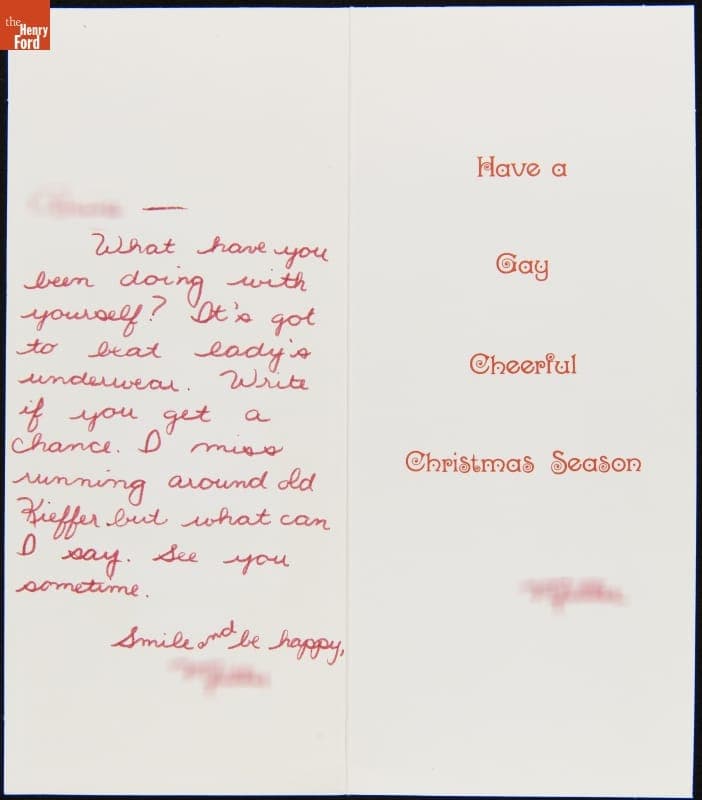 the
Henry
Ford
—
What have you
been doing with
yourself? It's got
to beat lady's
underwear. Write
if you get a
chance. I miss
running around old
Kieffer but what can
I say. See you
sometime.
Smile and be happy,
Have a
Gay
Cheerful
Christmas Season